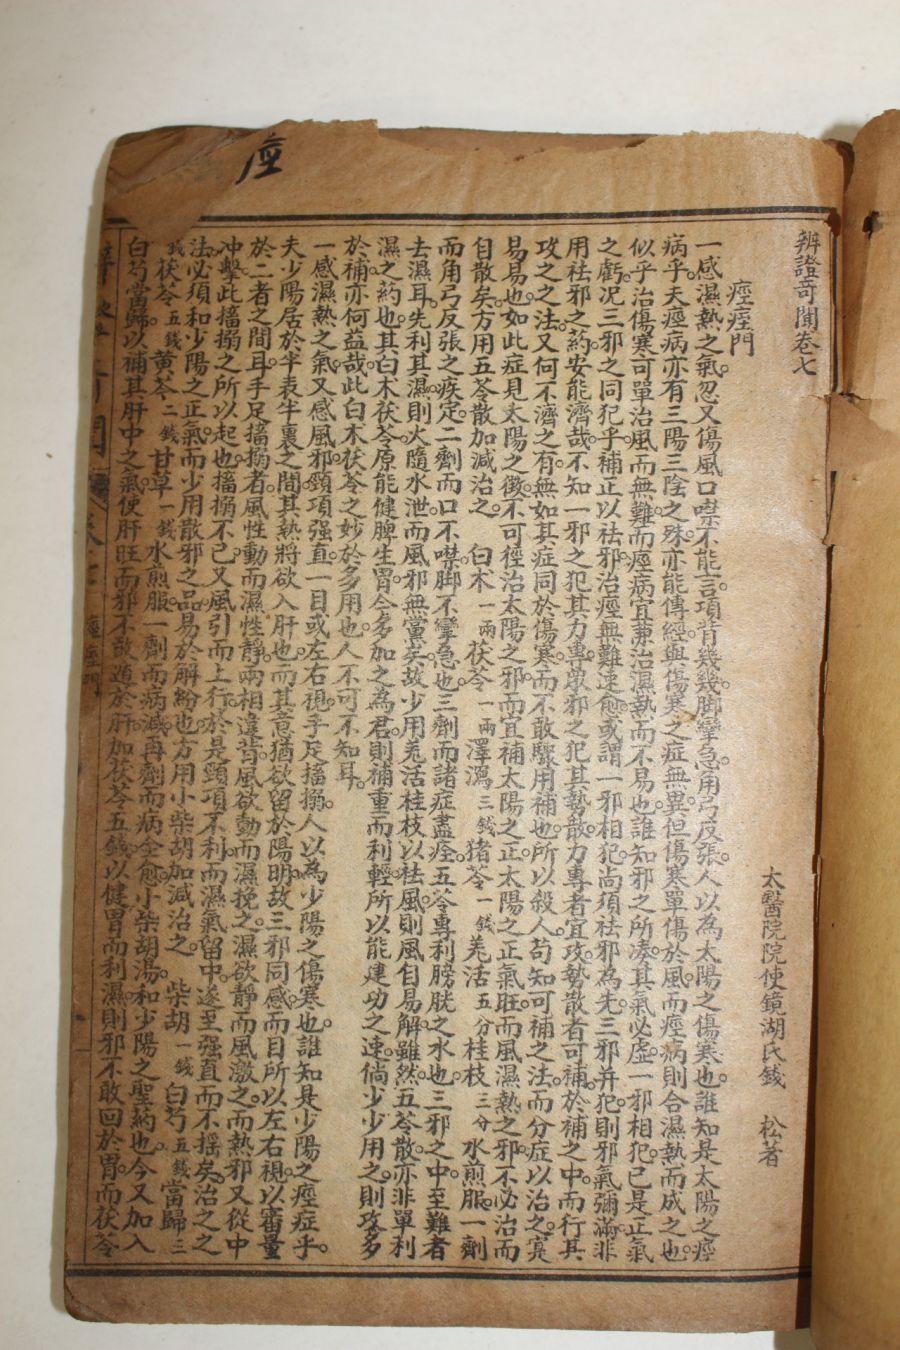 痙
辨證奇聞卷七
太醫院院使鏡湖氏錢 松著
痙痙門
一感濕熱之氣忽又傷風口噤不能言項背幾幾脚攣急角弓反張人以為太陽之傷寒也誰知是太陽之痙
病乎夫痙病亦有三陽三陰之殊亦能傳經與傷寒之症無異但傷寒單傷於風而痙病則合濕熱而成之也
似乎治傷寒可單治風而無難而痙病宜兼治濕熱而不易也誰知邪之所湊其氣必虛一邪相犯已是正氣
之虧况三邪之同犯乎補正以祛邪治痙無難速愈或謂一邪相犯尚須祛邪為先三邪并犯則邪氣彌滿非
用祛邪之药安能濟哉不知一邪之犯其力專衆邪之犯其勢散力專者宜攻勢散者可補於補之中而行其
攻之之法又何不濟之有無如其症同於傷寒而不敢驟用補也所以殺人苟知可補之法而分症以治之寔
易易也如此症見太陽之徵不可徑治太陽之邪而宜補太陽之正太陽之正氣旺而風濕熱之邪不必治而
自散矣方用五苓散加減治之 白术一兩茯苓一兩澤瀉三錢猪苓一錢羗活五分桂枝三分水煎服一劑
而角弓反張之疾定二劑而口不噤脚不攣急也三劑而諸症盡痊五苓專利膀胱之水也三邪之中至難者
去濕耳先利其濕則火隨水泄而風邪無黨矣故少用羗活桂枝以祛風則風自易解雖然五苓散亦非單利
濕之药也其白术茯苓原能健脾生胃今多加之為君則補重而利輕所以能建功之速倘少少用之則攻多
於補亦何益哉此白术茯苓之妙於多用也人不可不知耳
一感濕熱之氣又感風邪頸項强直一目或左右視手足搐搦人以為少陽之傷寒也誰知是少陽之痙症乎
夫少陽居於半表半裏之間其熱將欲入肝也而其意猶欲留於陽明故三邪同感而目所以左右視以審量
於二者之間耳手足搐搦者風性動而濕性靜兩相違背風欲動而濕挽之濕欲靜而風激之而熱邪又從中
冲擊此搐搦之所以起也搐搦不已又風引而上行於是頸項不利而濕氣留中遂至强直而不摇矣治之之
法必須和少陽之正氣而少用散邪之品易於解紛也方用小柴胡加減治之 柴胡一錢白芍五錢當歸三
錢茯苓五錢黄芩二錢甘草一錢水煎服一劑而病減再劑而病全愈小柴胡湯和少陽之聖药也今又加入
白芍當歸以補其肝中之氣使肝旺而邪不敢遁於肝加茯苓五錢以健胃而利濕則邪不敢回於胃而茯苓
痙痙門